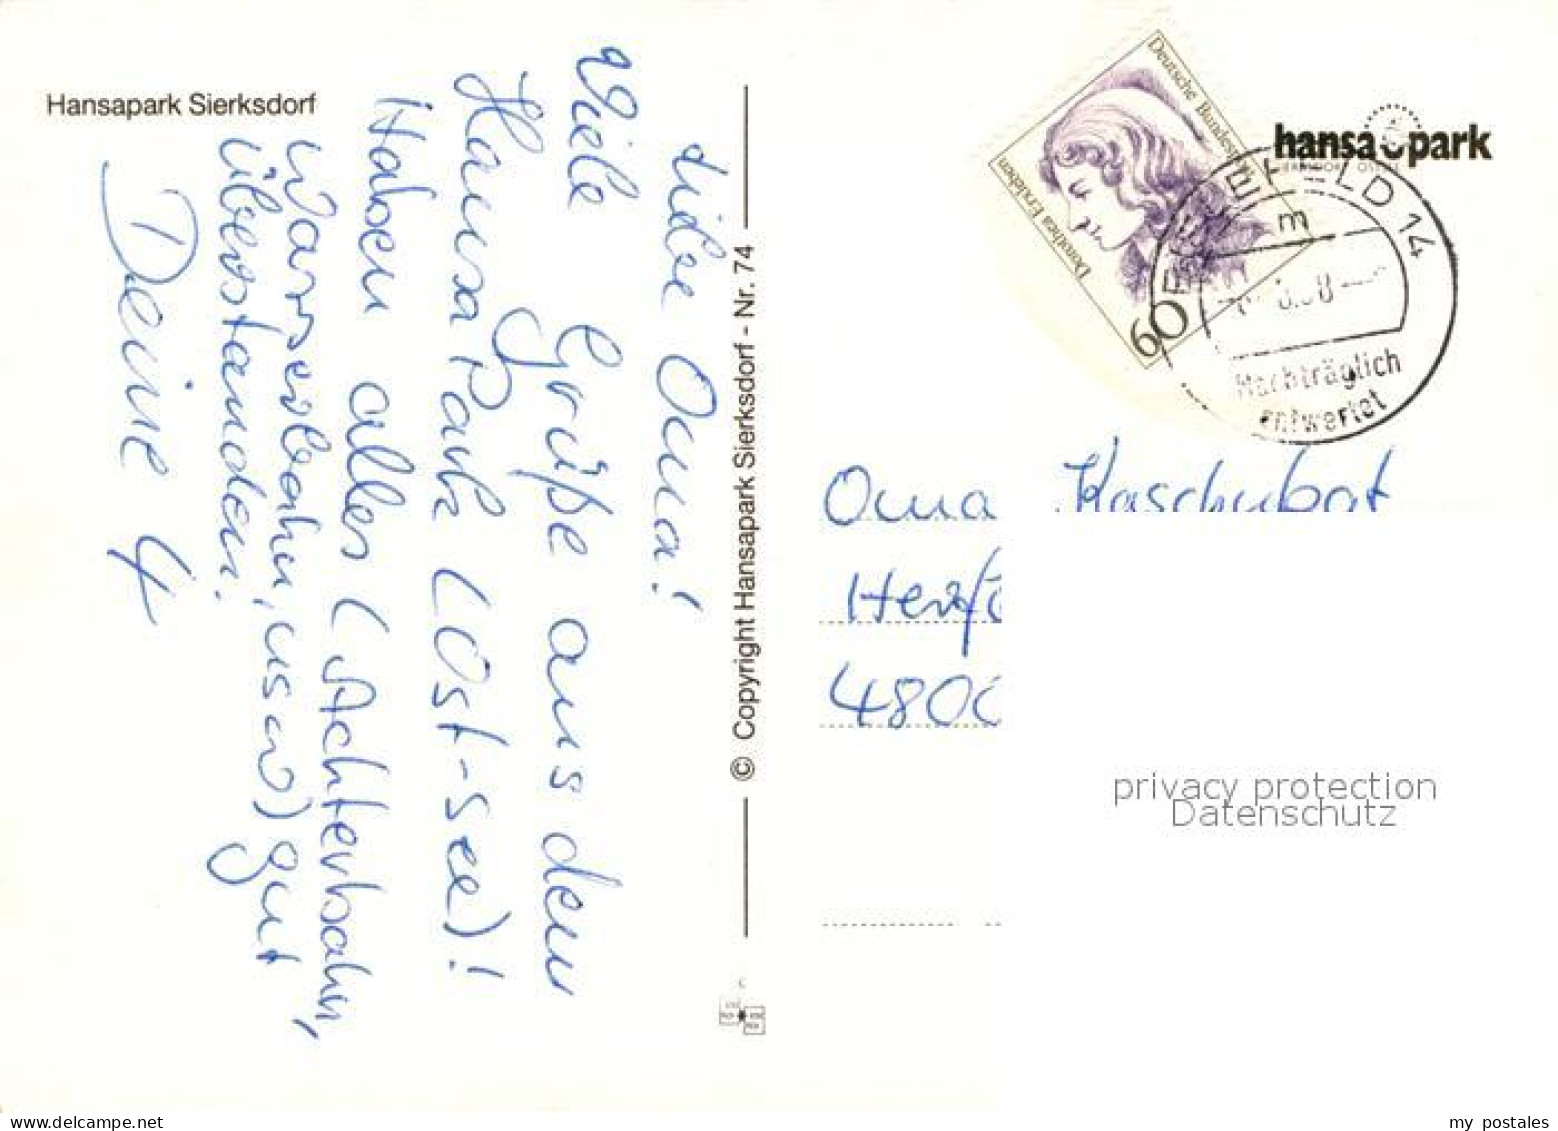 Hansapark Sierksdorf
Liebe Oma!
Viele Grüße aus dem
Hansa Park (Ost-see)!
Haben alles (Achterbahn,
Wasserbahn, usw) gut
überstanden.
Deine 4
© Copyright Hansapark Sierksdorf - Nr. 74
Deutsche Bundespost
Dorothea Erxleben
60
hansa park
BIELEFELD 14
m
Nachträglich
entwertet
Oma Kaschubat
4800
privacy protection
Datenschutz
my postales